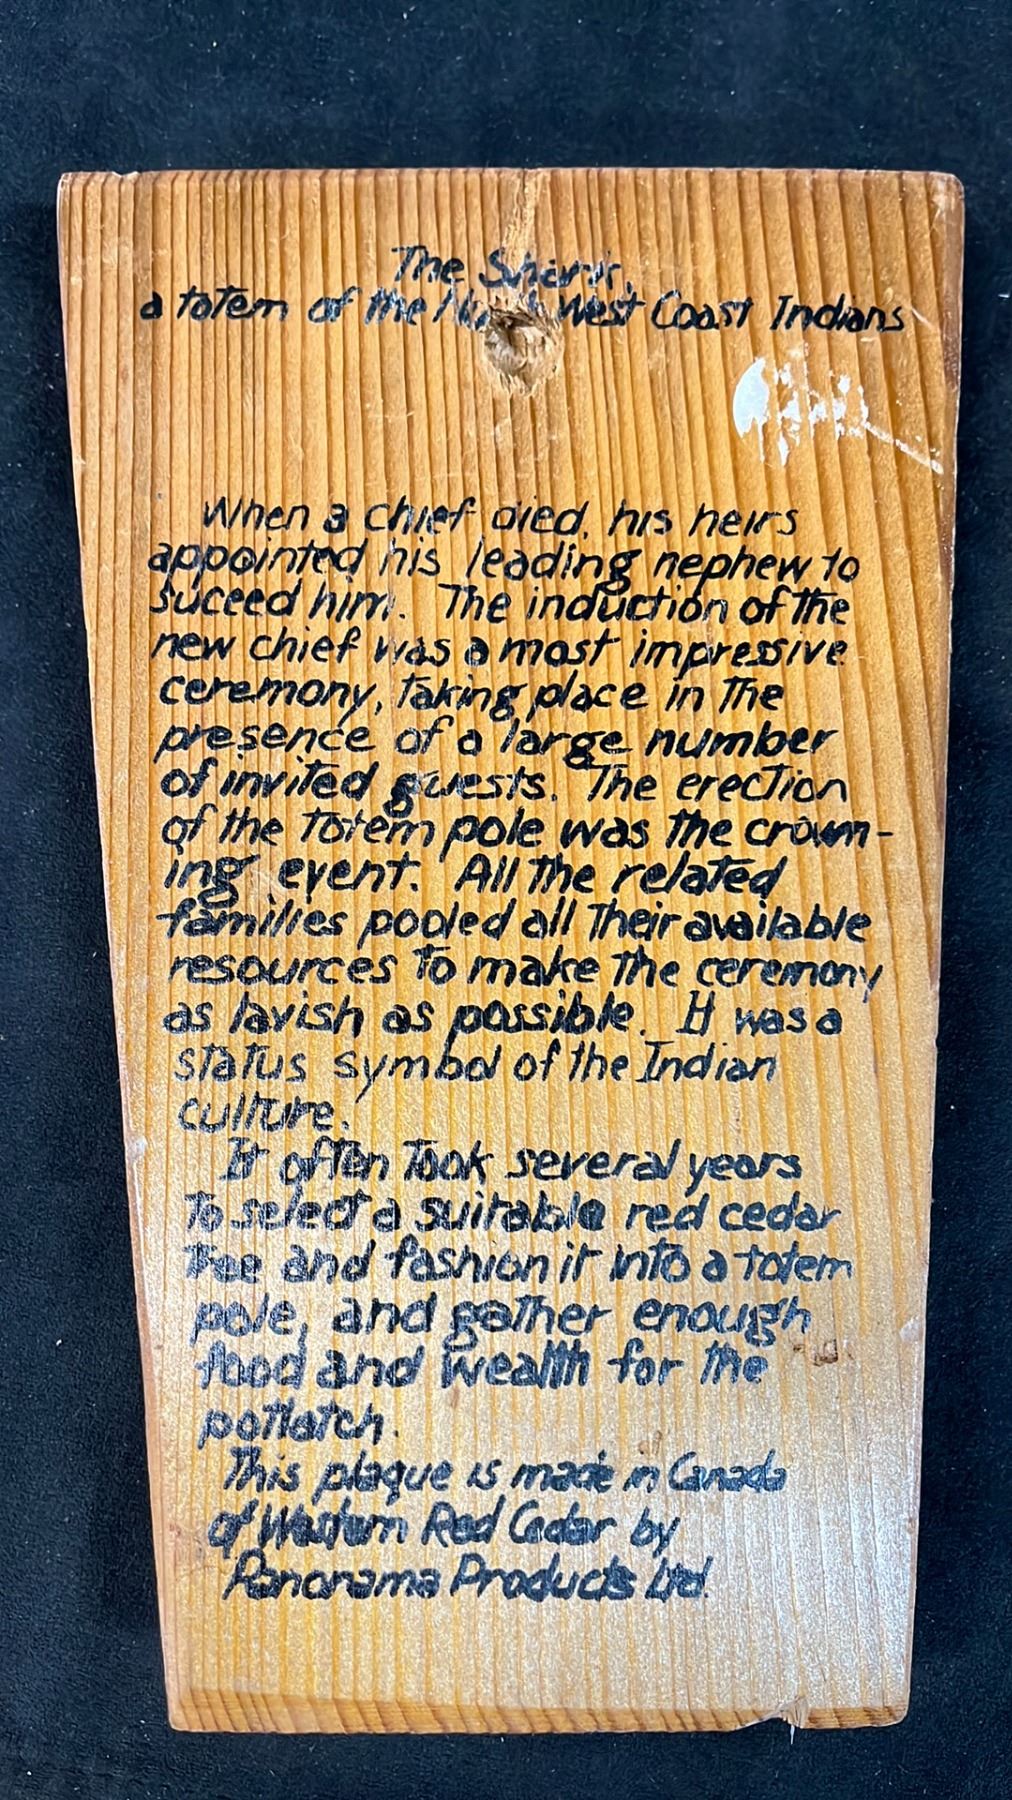 The Shark,
a totem of the North West Coast Indians
When a chief died, his heirs
appointed his leading nephew to
suceed him. The induction of the
new chief was a most impressive
ceremony, taking place in the
presence of a large number
of invited guests. The erection
of the totem pole was the crown-
ing event. All the related
families pooled all their available
resources to make the ceremony
as lavish as possible. It was a
status symbol of the Indian
culture.
It often took several years
to select a suitable red cedar
tree and fashion it into a totem
pole, and gather enough
food and wealth for the
potlatch.
This plaque is made in Canada
of Western Red Cedar by
Panorama Products Ltd.